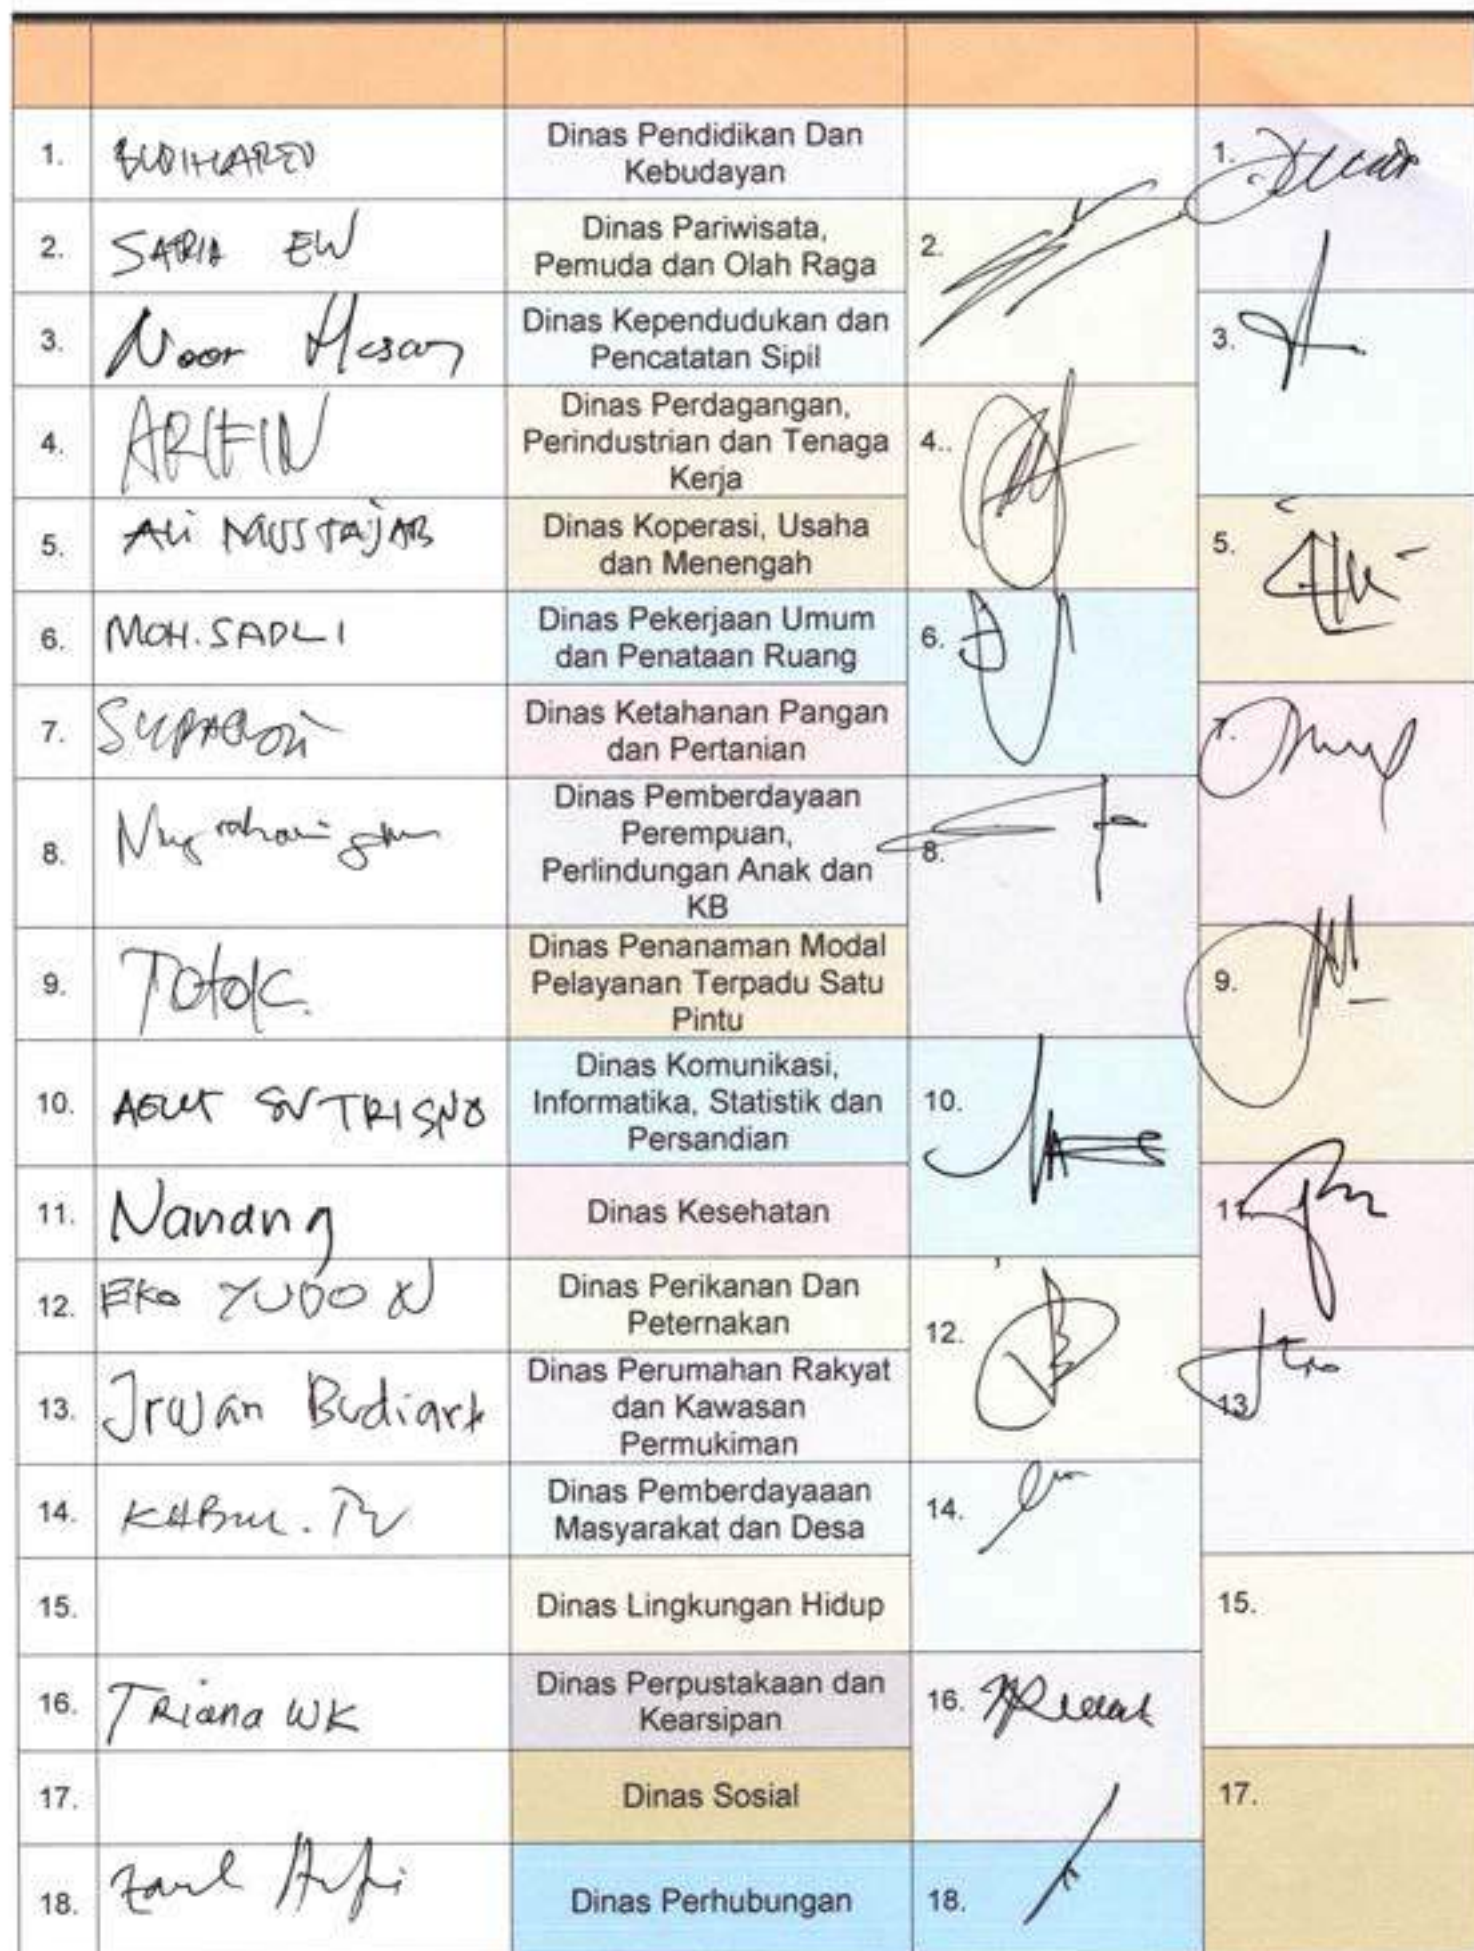 1.
Dinas Pendidikan Dan
Kebudayan
1.
2.
SATRIA EW
Dinas Pariwisata,
Pemuda dan Olah Raga
2.
3.
Noor Hasan
Dinas Kependudukan dan
Pencatatan Sipil
3.
4.
ARIFIN
Dinas Perdagangan,
Perindustrian dan Tenaga
Kerja
4..
5.
ALi MUSTAJAB
Dinas Koperasi, Usaha
dan Menengah
5.
6.
MOH. SADLI
Dinas Pekerjaan Umum
dan Penataan Ruang
6.
7.
Dinas Ketahanan Pangan
dan Pertanian
7.
8.
Dinas Pemberdayaan
Perempuan,
Perlindungan Anak dan
KB
8.
9.
Totok.
Dinas Penanaman Modal
Pelayanan Terpadu Satu
Pintu
9.
10.
SUTRISNO
Dinas Komunikasi,
Informatika, Statistik dan
Persandian
10.
11.
Nanang
Dinas Kesehatan
11.
12.
EKo YUDO N
Dinas Perikanan Dan
Peternakan
12.
13.
Irwan
Dinas Perumahan Rakyat
dan Kawasan
Permukiman
13.
14.
Dinas Pemberdayaaan
Masyarakat dan Desa
14.
15.
Dinas Lingkungan Hidup
15.
16.
TRiana WK
Dinas Perpustakaan dan
Kearsipan
16.
17.
Dinas Sosial
17.
18.
Dinas Perhubungan
18.